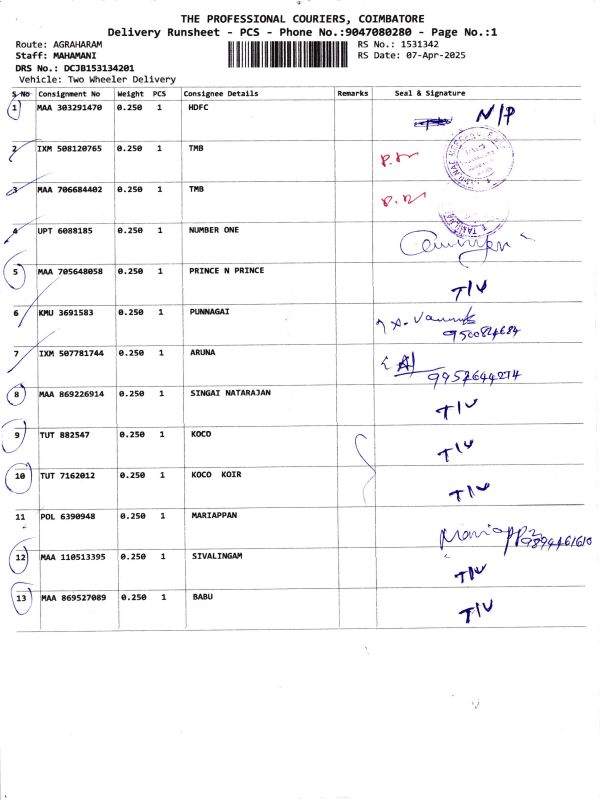 THE PROFESSIONAL COURIERS, COIMBATORE
Delivery Runsheet - PCS - Phone No.:9047080280 - Page No.:1
Route: AGRAHARAM RS No.: 1531342
Staff: MAHAMANI RS Date: 07-Apr-2025
DRS No.: DCJB153134201
Vehicle: Two Wheeler Delivery
S No Consignment No Weight PCS Consignee Details Remarks Seal & Signature
1 MAA 303291470 0.250 1 HDFC N/P
2 IXM 508120765 0.250 1 TMB
3 MAA 706684402 0.250 1 TMB
4 UPT 6088185 0.250 1 NUMBER ONE
5 MAA 705648058 0.250 1 PRINCE N PRINCE T/V
6 KMU 3691583 0.250 1 PUNNAGAI
7 IXM 507781744 0.250 1 ARUNA
8 MAA 869226914 0.250 1 SINGAI NATARAJAN T/V
9 TUT 882547 0.250 1 KOCO T/V
10 TUT 7162012 0.250 1 KOCO KOIR T/V
11 POL 6390948 0.250 1 MARIAPPAN
12 MAA 110513395 0.250 1 SIVALINGAM T/V
13 MAA 869527089 0.250 1 BABU T/V